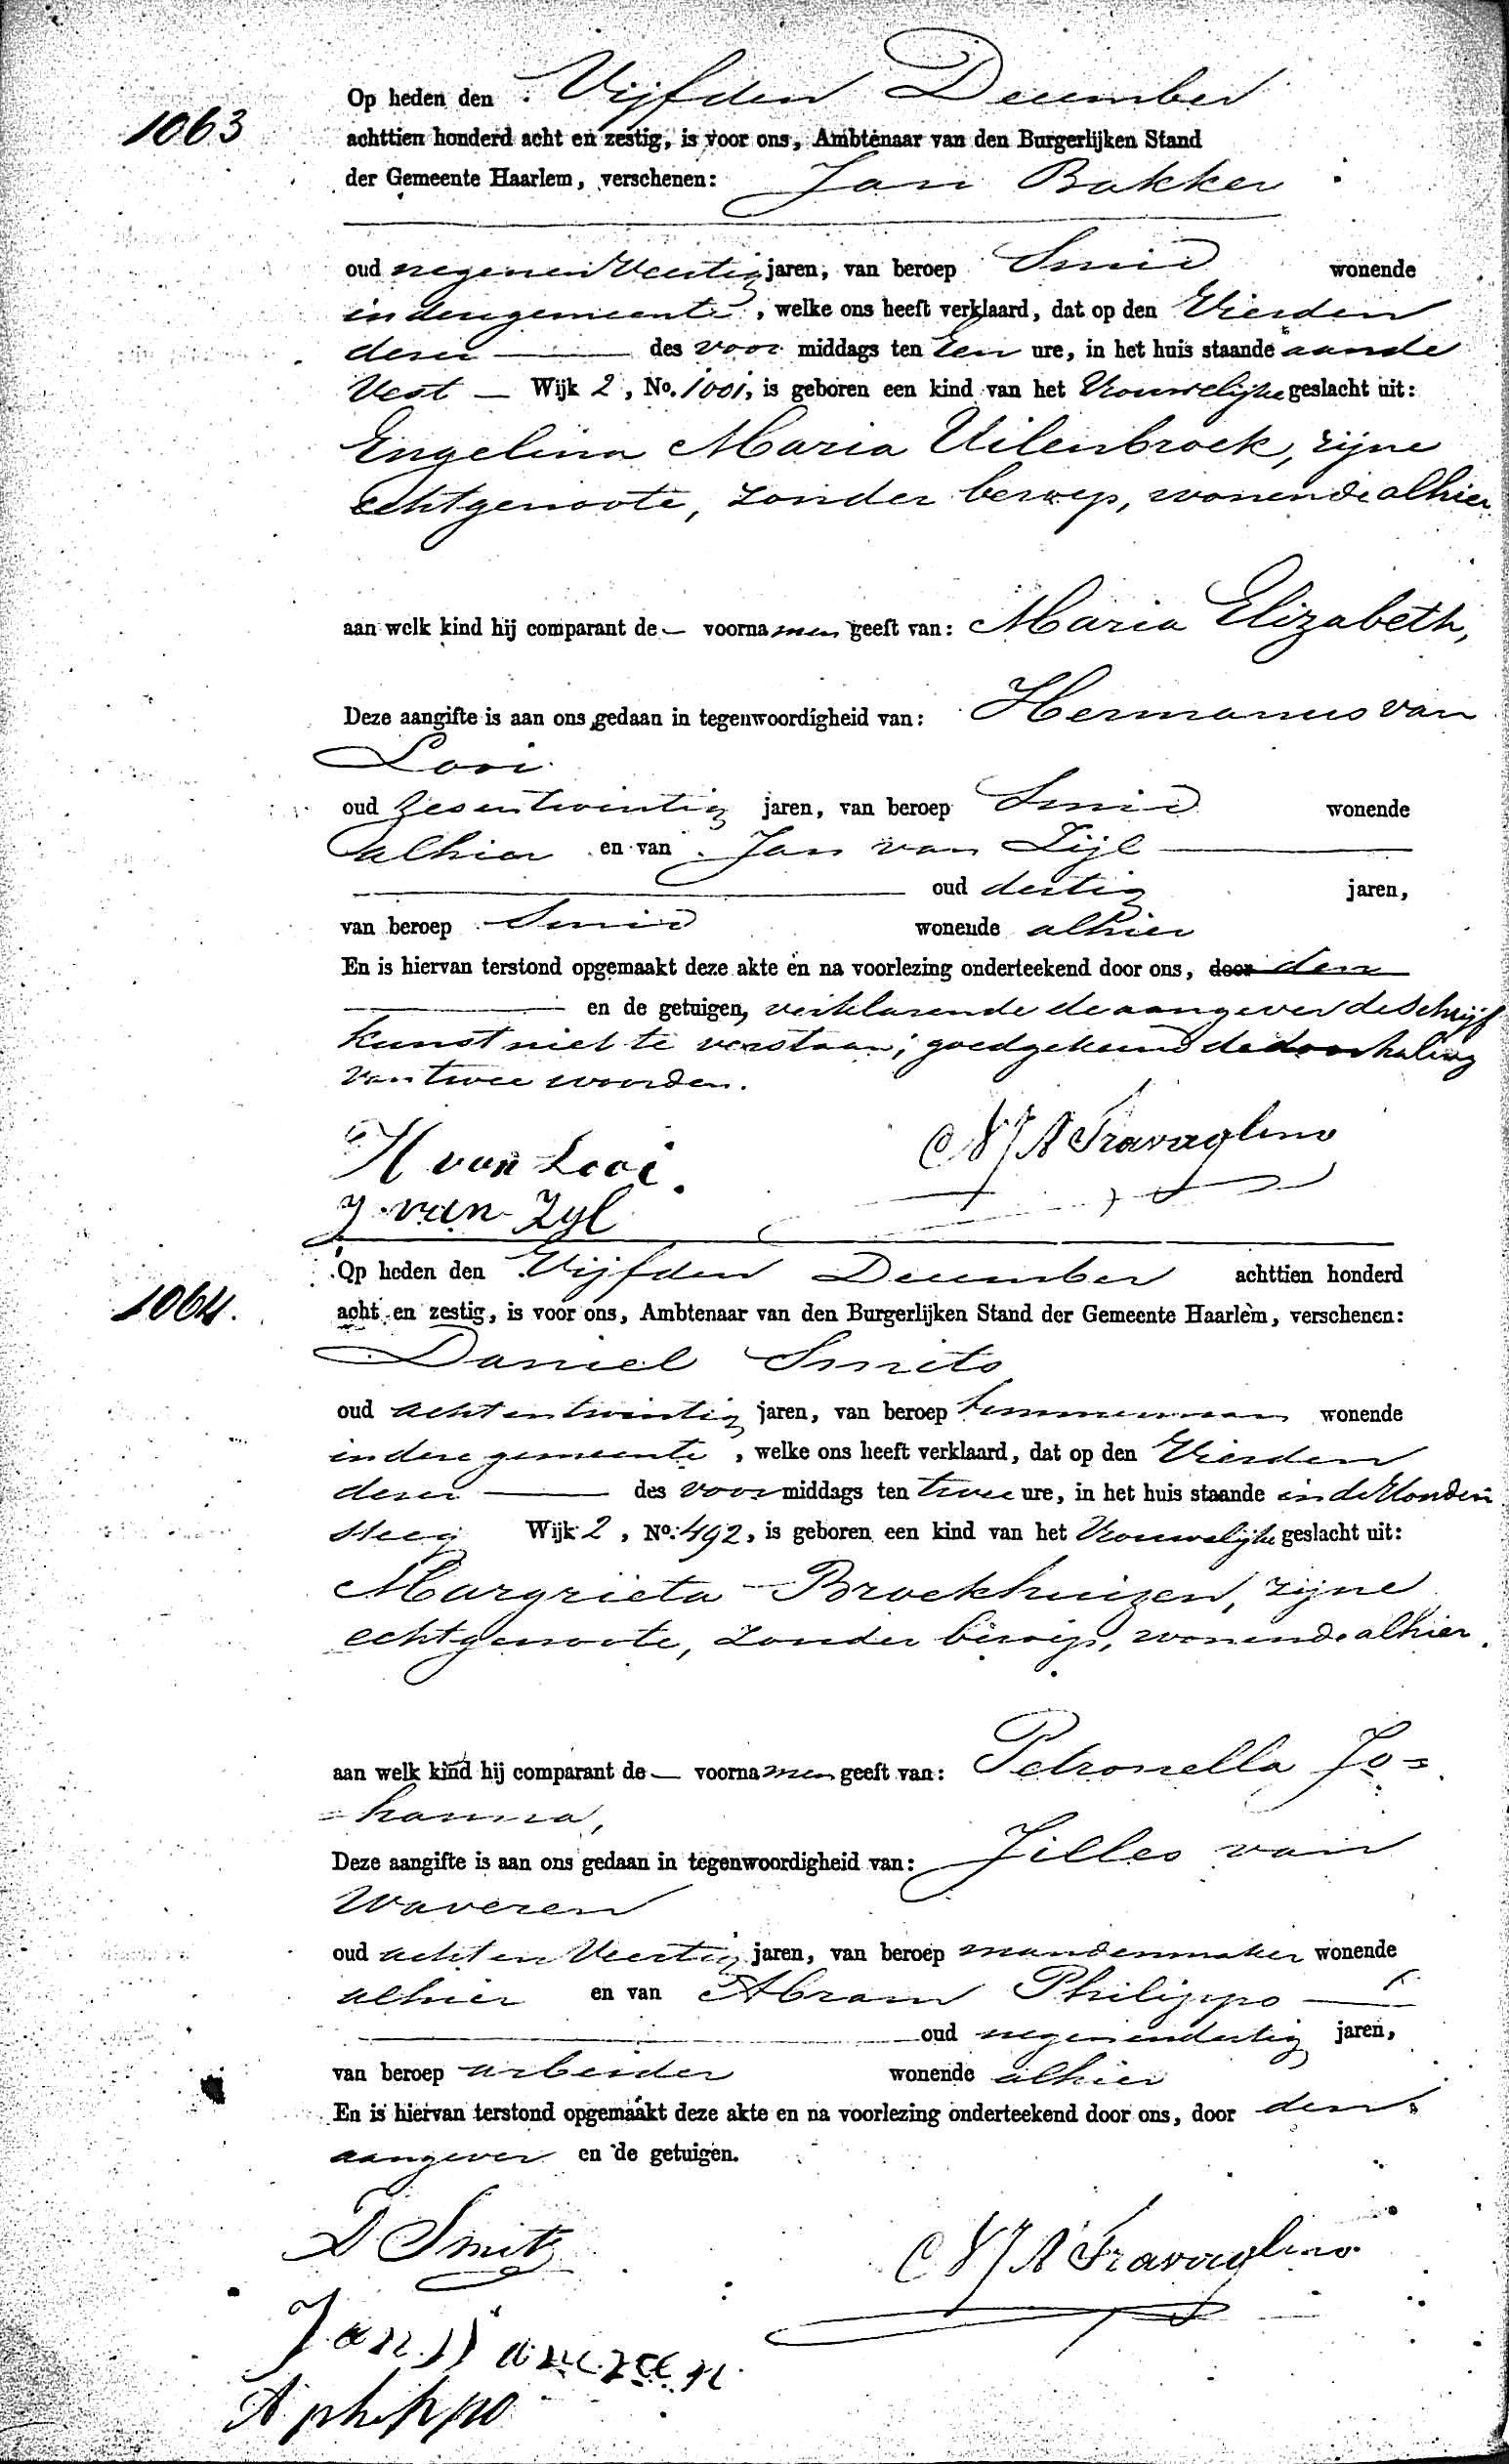 1063
Op heden den Vijfden December
achttien honderd acht en zestig, is voor ons, Ambtenaar van den Burgerlijken Stand
der Gemeente Haarlem, verschenen: Jan Bakker
oud negenenveertig jaren, van beroep Smid wonende
in deze gemeente, welke ons heeft verklaard, dat op den Vierden
dezer des voor middags ten Een ure, in het huis staande aan de
Vest Wijk 2, No. 1001, is geboren een kind van het Vrouwelijke geslacht uit:
Engelina Maria Uilenbroek, zijne
echtgenoote, zonder beroep, wonende alhier
aan welk kind hij comparant de voornamen geeft van: Maria Elizabeth,
Deze aangifte is aan ons gedaan in tegenwoordigheid van: Hermanus van
Looi
oud Zesentwintig jaren, van beroep Smid wonende
alhier en van Jan van Zijl
oud dertig jaren,
van beroep Smid wonende alhier
En is hiervan terstond opgemaakt deze akte en na voorlezing onderteekend door ons, door den
en de getuigen, verklarende de aangever de schrijf
kunst niet te verstaan; goedgekeurd de doorhaling
van twee woorden.
H van Looi.
C N J A Travaglino
J. van Zyl
1064.
Op heden den Vijfden December achttien honderd
acht en zestig, is voor ons, Ambtenaar van den Burgerlijken Stand der Gemeente Haarlem, verschenen:
Daniel Smits
oud achtentwintig jaren, van beroep timmerman wonende
in deze gemeente, welke ons heeft verklaard, dat op den Vierden
dezer des voor middags ten twee ure, in het huis staande in de Honden
steeg Wijk 2, No. 492, is geboren een kind van het Vrouwelijke geslacht uit:
Margrieta Broekhuizen, zijne
echtgenoote, zonder beroep, wonende alhier.
aan welk kind hij comparant de voornamen geeft van: Petronella Jo=
=hanna,
Deze aangifte is aan ons gedaan in tegenwoordigheid van: Jilles van
Waveren
oud achtenveertig jaren, van beroep mandenmaker wonende
alhier en van Abram Philippo
oud negenendertig jaren,
van beroep arbeider wonende alhier
En is hiervan terstond opgemaakt deze akte en na voorlezing onderteekend door ons, door den
aangever en de getuigen.
D Smits
C N J A Travaglino
A phippo